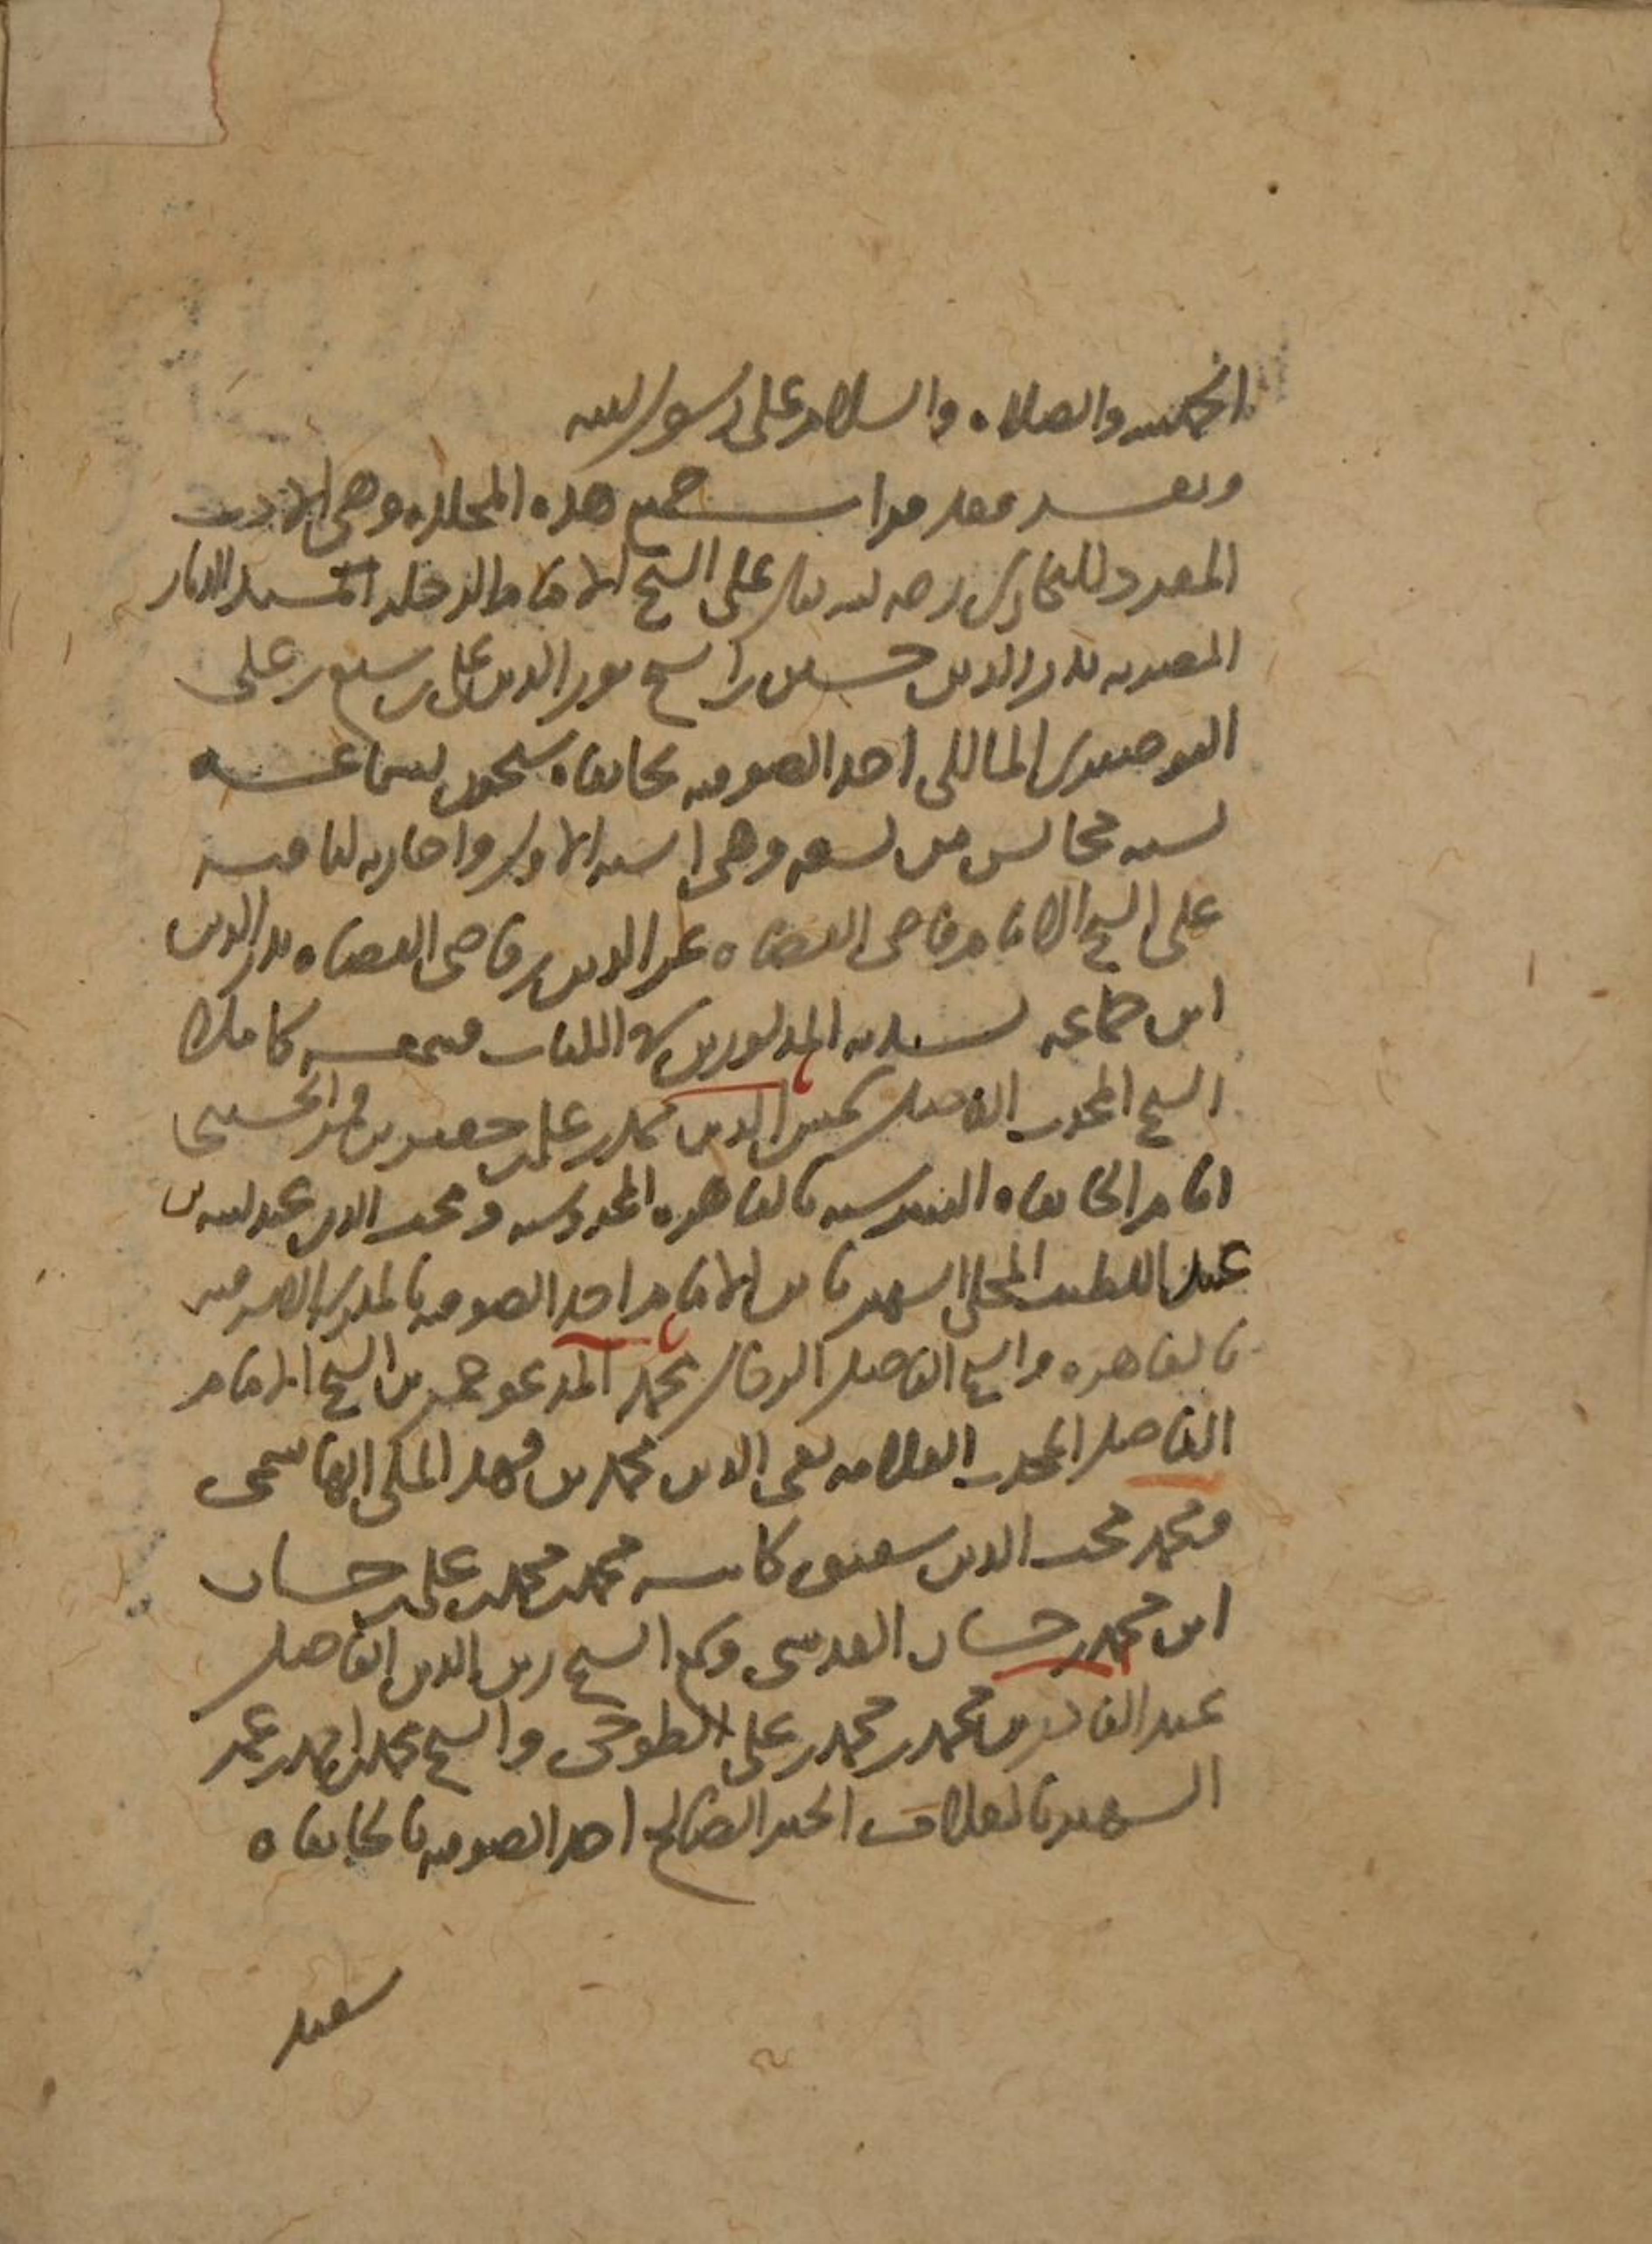 الحمد لله والصلاة والسلام على رسول الله
وبعد فقد قرات جميع هذه المجلدة وهي الادب
المفرد للبخاري رحمه الله تعالى على الشيخ الامام المسند
المصرية بدر الدين حسين بن الشيخ نور الدين علي بن سبع بن علي
البوصيري المالكي احد الصوفية بخانقاه شيخون بسماعه
لستة مجالس من تسعة وهي الستة الاول واجازته لباقيه
على الشيخ الامام قاضي القضاة عز الدين بن قاضي القضاة بدر الدين
ابن جماعة بسنده المذكورين الكتاب فسمعه كاملا
الشيخ المحدث الفاضل شمس الدين محمد بن علي بن جعفر بن
امام الخانقاه البيبرسية بالقاهرة المحروسة ومحب الدين عبد الله بن
عبد اللطيف المحلي الشهير بابن الامام احد الصوفية بالمدرسة الاشرفية
بالقاهرة والشيخ الفاضل محمد المدعو عمر بن الشيخ الامام
الفاضل المحدث العلامة تقي الدين محمد بن فهد المكي الهاشمي
ومحمد محب الدين شقيق كاتبه محمد بن محمد بن علي بن حسان
ابن محمد بن حسان القدسي وسمع الشيخ زين الدين الفاضل
عبد القادر بن محمد بن محمد بن علي الطوخي والشيخ محمد بن احمد بن عمر
الشهير بالعلاف الخير الصالح احد الصوفية بالخانقاه
سعيد